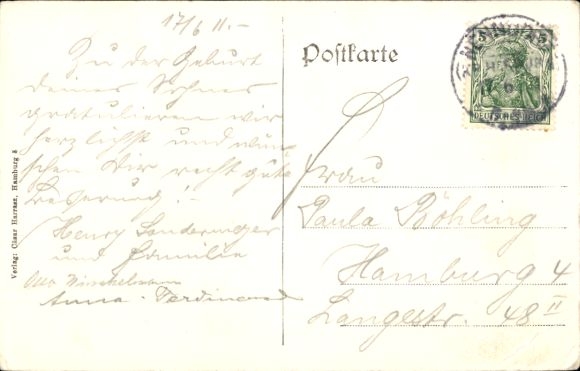 17/6 11.-
Zu der Geburt
deines Sohnes
gratulieren wir
herzlichst und wün-
schen Dir recht gute
Besserung!-
Henry
und Familie
Anna. Ferdinand
Verlag: Cläar Harrass, Hamburg 5
Postkarte
5 5
DEUTSCHES REICH
Frau
Paula Röhling
Hamburg 4
Langestr. 48 II